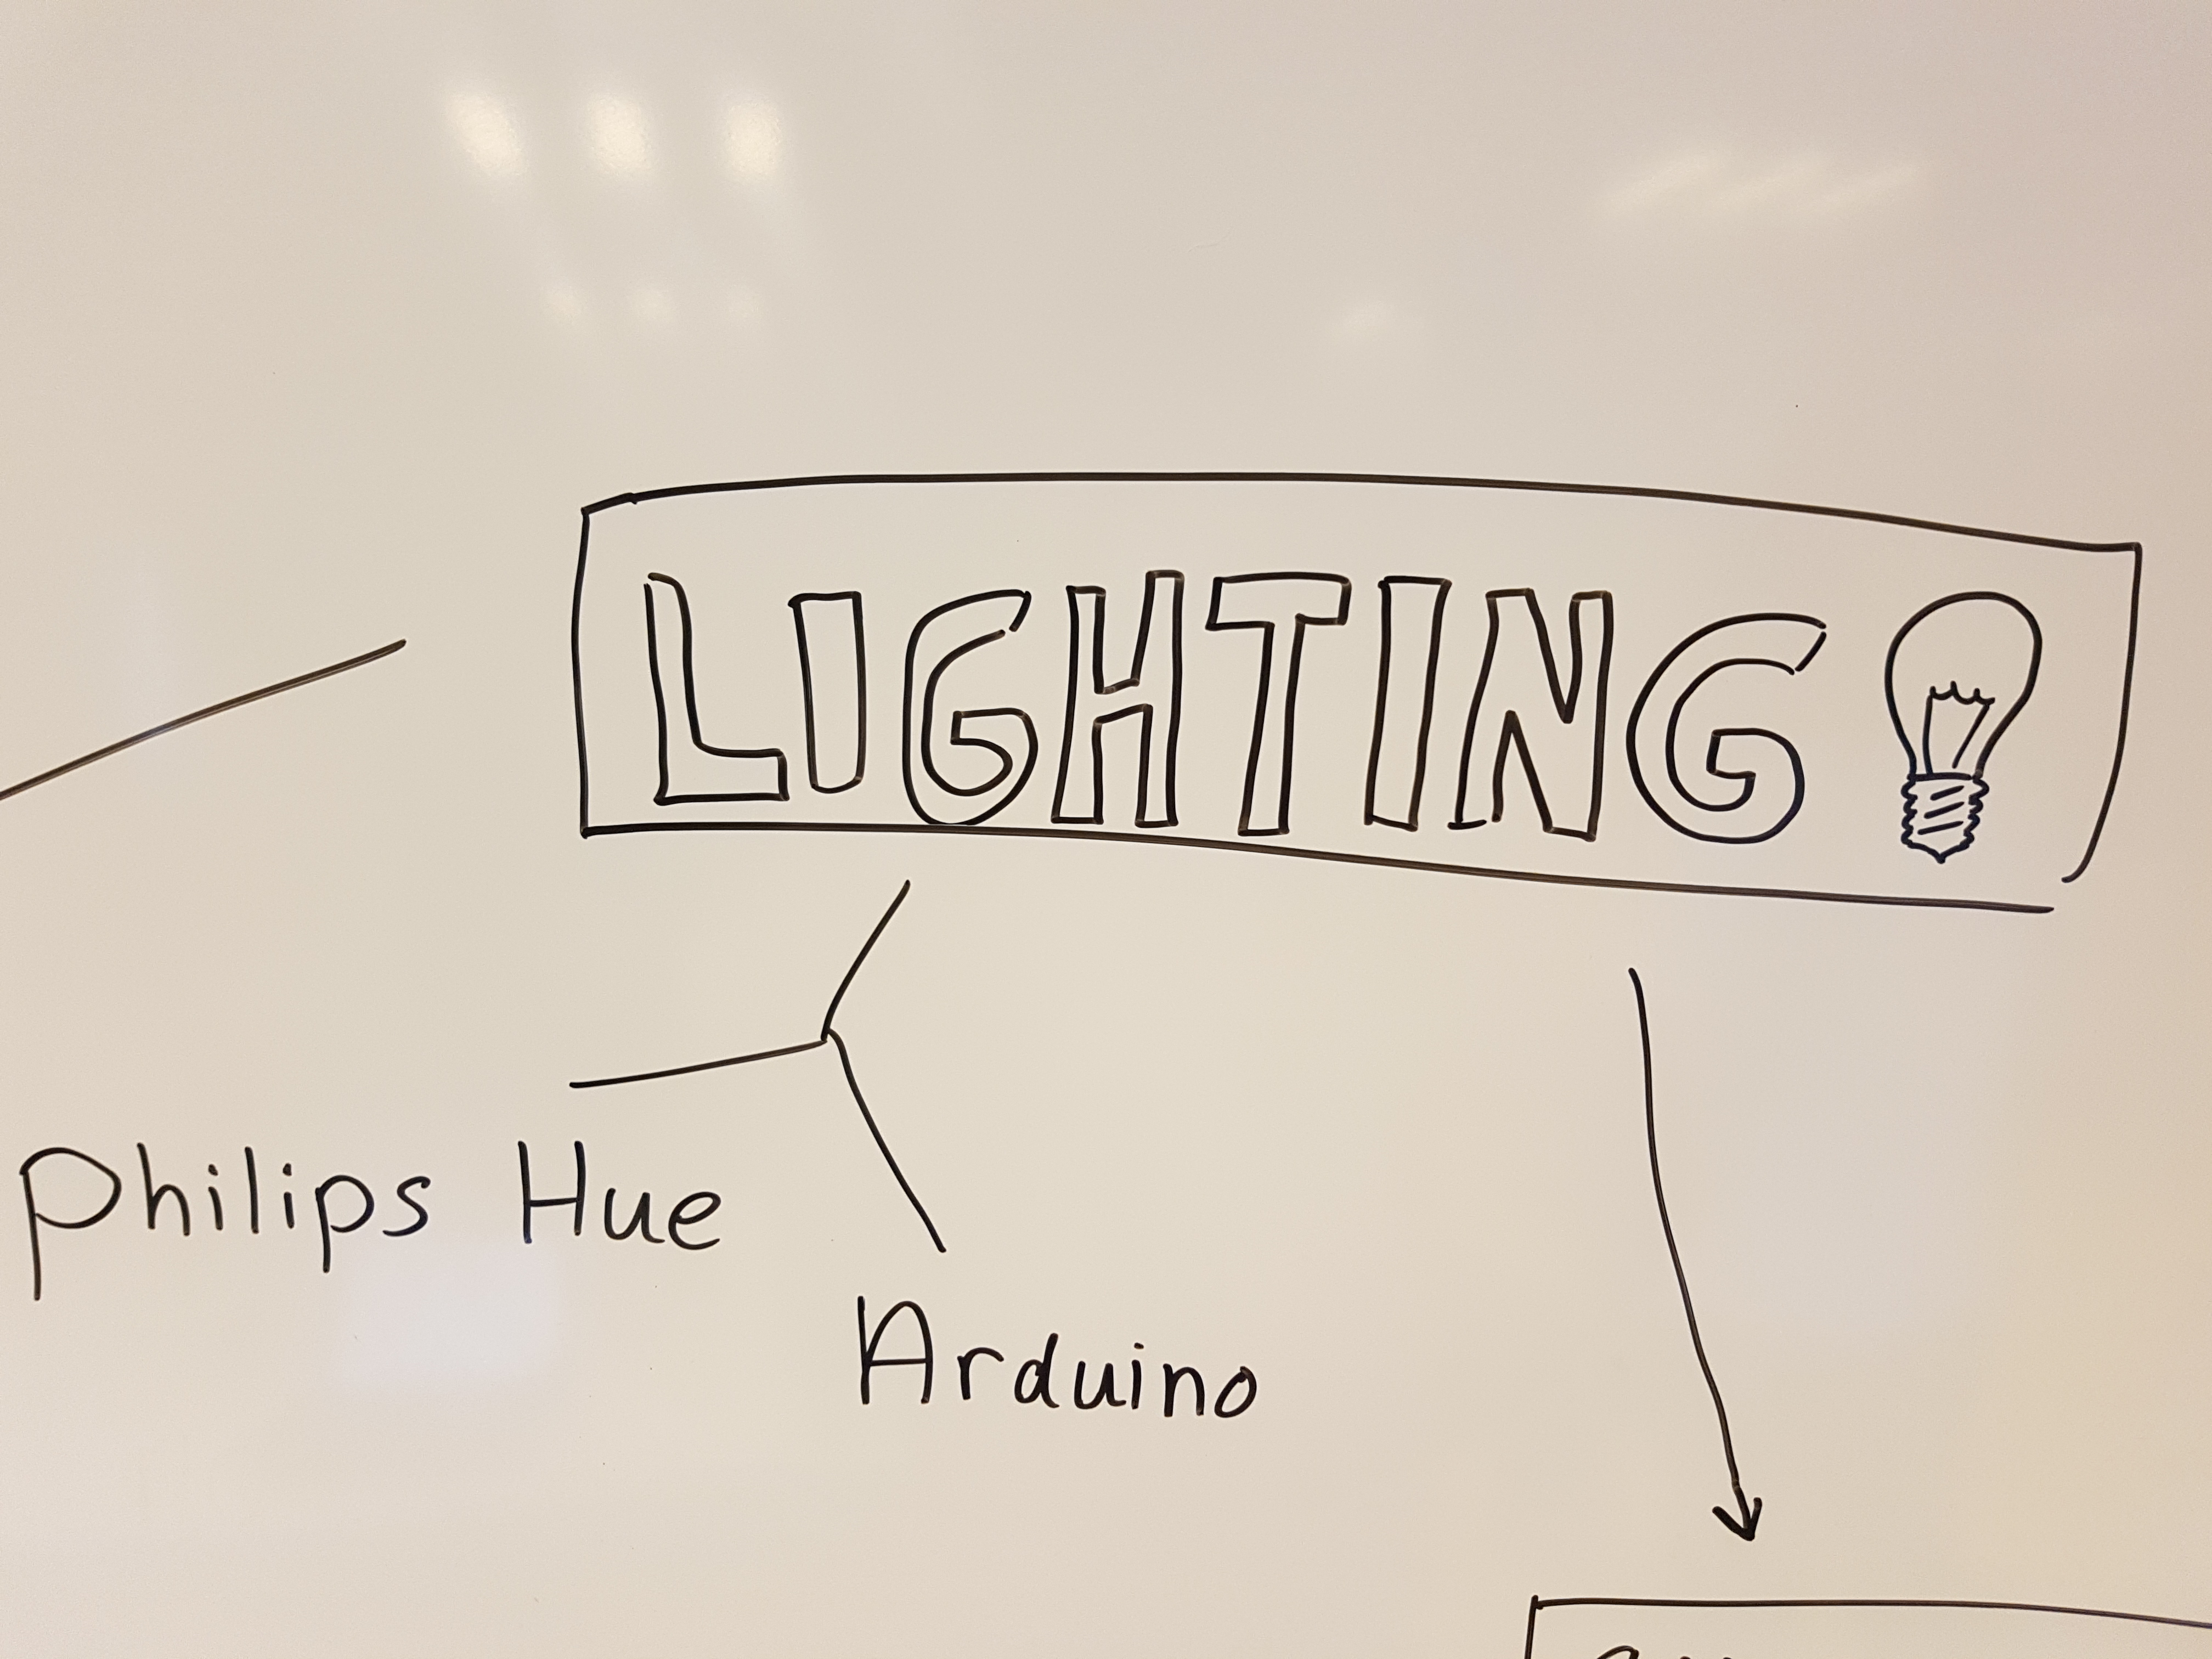 LIGHTING
Philips Hue
Arduino